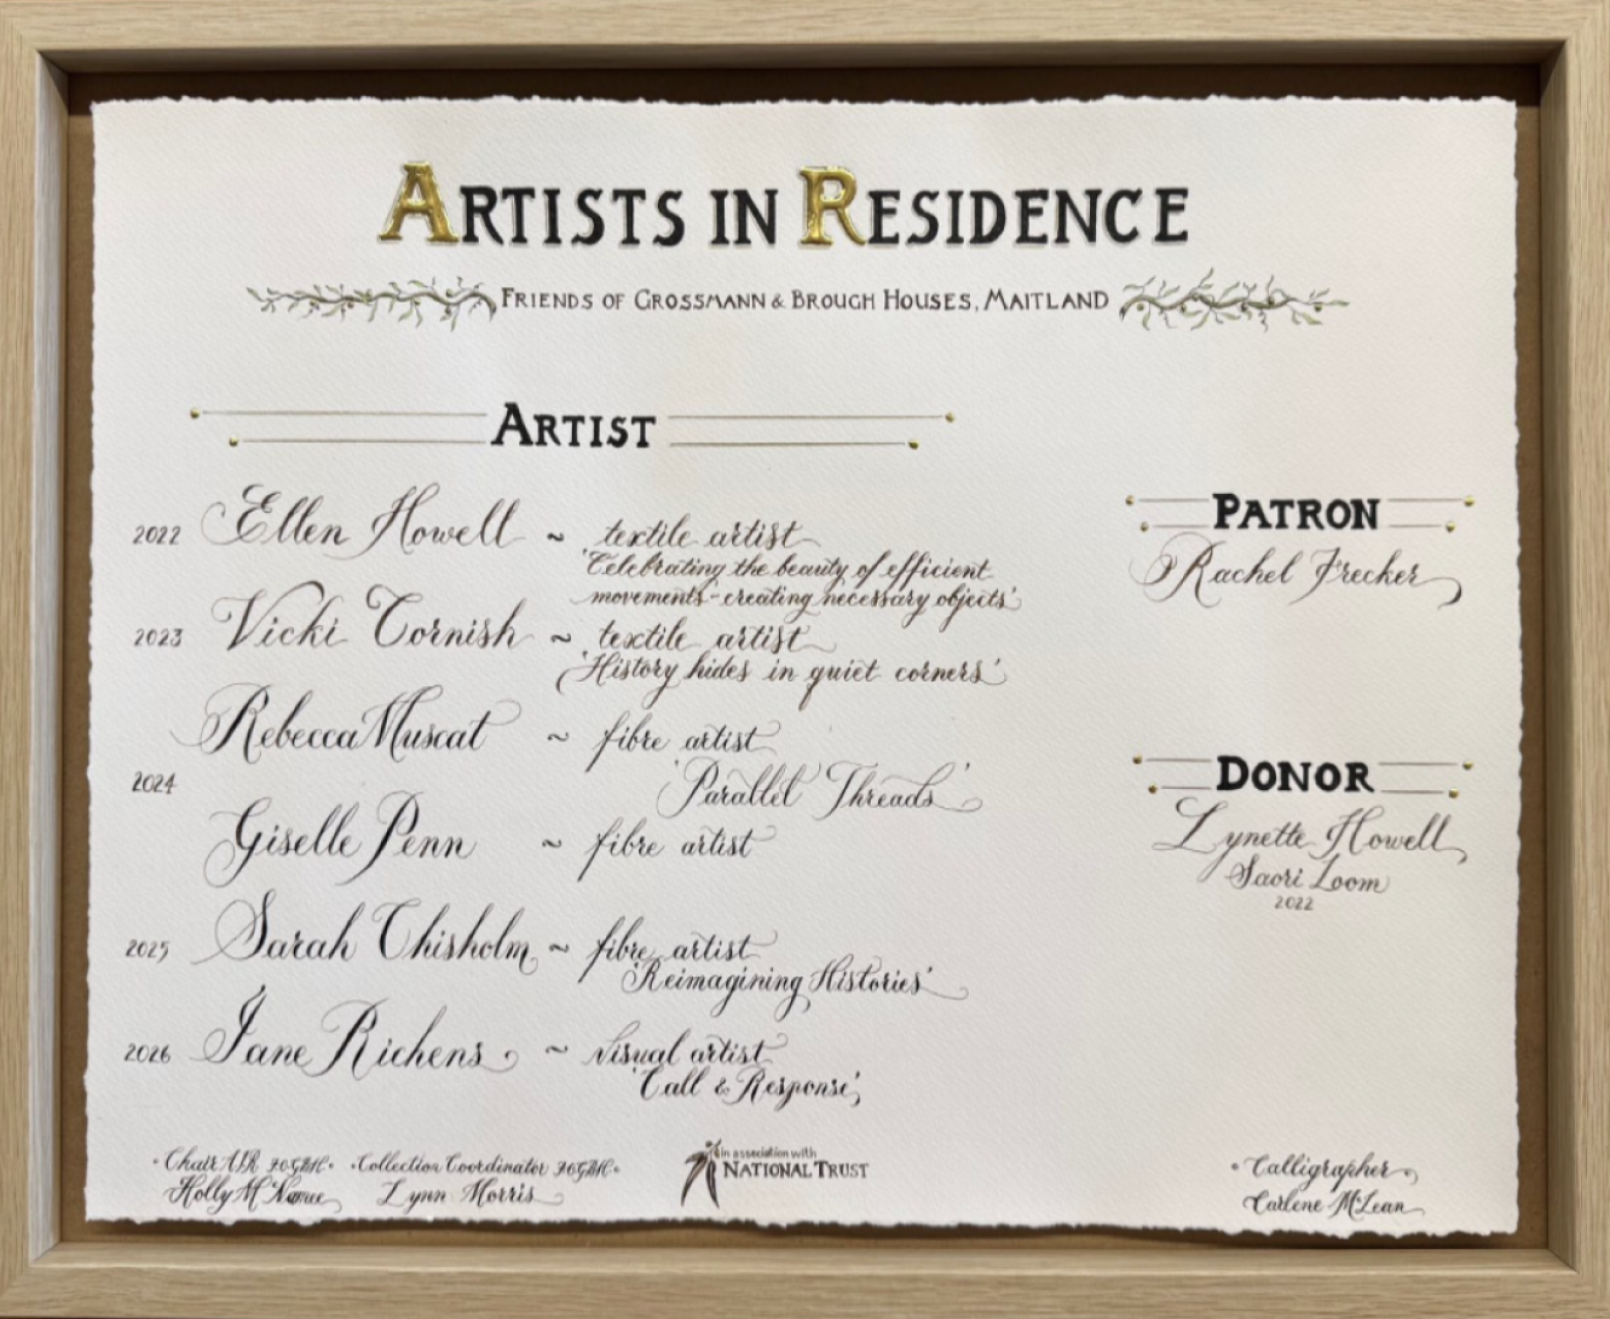 ARTISTS IN RESIDENCE
FRIENDS OF GROSSMANN & BROUGH HOUSES, MAITLAND
ARTIST
2022 Ellen Howell ~ textile artist
'Celebrating the beauty of efficient
movements - creating necessary objects'
2023 Vicki Cornish ~ textile artist
'History hides in quiet corners'
Rebecca Muscat ~ fibre artist
2024 'Parallel Threads'
Giselle Penn ~ fibre artist
2025 Sarah Chisholm ~ fibre artist
'Reimagining Histories'
2026 Jane Richens ~ visual artist
'Call & Response'
PATRON
Rachel Frecker
DONOR
Lynette Howell
Saori Loom
2022
Chair AIR FOGBH
Holly McNamee
Collection Coordinator FOGBH
Lynn Morris
in association with
NATIONAL TRUST
Calligrapher
Carlene McLean